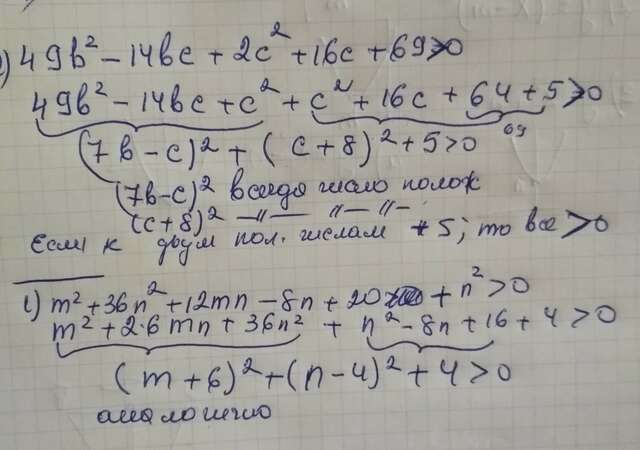 ) 49b² - 14bc + 2c² + 16c + 69 > 0
49b² - 14bc + c² + c² + 16c + 64 + 5 > 0
69
(7b - c)² + (c + 8)² + 5 > 0
(7b - c)² всегда число полож
(c + 8)² -//- -//-
Если к двум пол. числам + 5; то все > 0
l) m² + 36n² + 12mn - 8n + 20 + n² > 0
m² + 2·6mn + 36n² + n² - 8n + 16 + 4 > 0
(m + 6)² + (n - 4)² + 4 > 0
аналогично